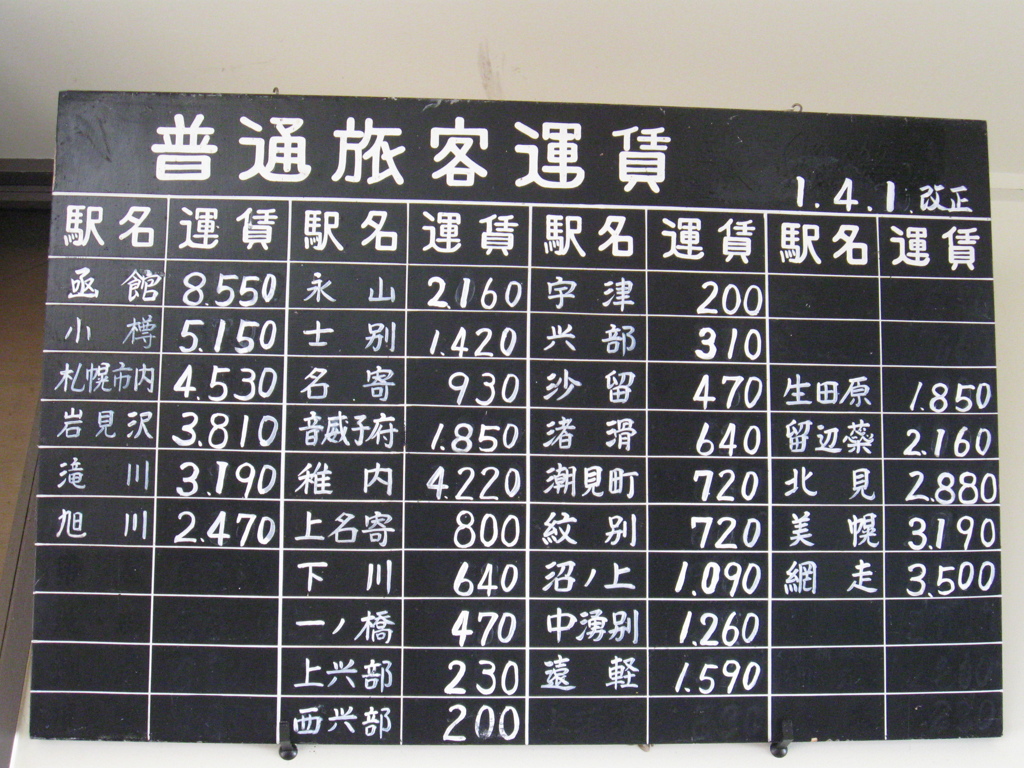 普通旅客運賃
1.4.1.改正
駅名 運賃 駅名 運賃 駅名 運賃 駅名 運賃
函館 8.550 永山 2.160 宇津 200
小樽 5.150 士別 1.420 兴部 310
札幌市内 4.530 名寄 930 沙留 470 生田原 1.850
岩見沢 3.810 音威子府 1.850 渚滑 640 留辺蘂 2.160
滝川 3.190 稚内 4.220 潮見町 720 北見 2.880
旭川 2.470 上名寄 800 紋別 720 美幌 3.190
下川 640 沼ノ上 1.090 網走 3.500
一ノ橋 470 中湧別 1.260
上兴部 230 遠軽 1.590
西兴部 200